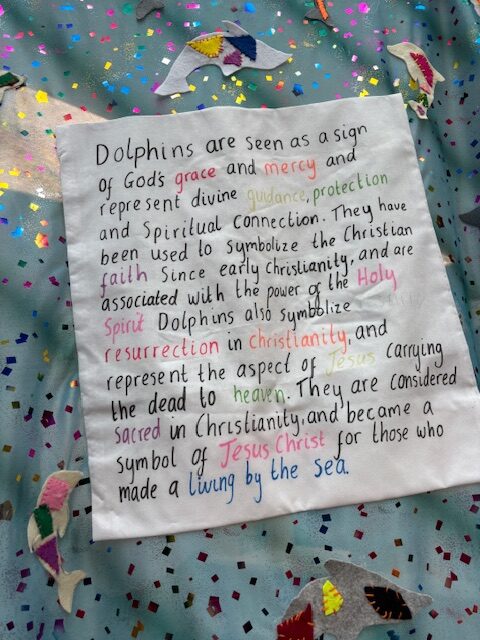 Dolphins are seen as a sign
of God's grace and mercy and
represent divine guidance, protection
and Spiritual Connection. They have
been used to symbolize the Christian
faith since early christianity, and are
associated with the power of the Holy
Spirit Dolphins also symbolize
resurrection in christianity, and
represent the aspect of Jesus carrying
the dead to heaven. They are considered
sacred in Christianity, and became a
symbol of Jesus Christ for those who
made a living by the sea.